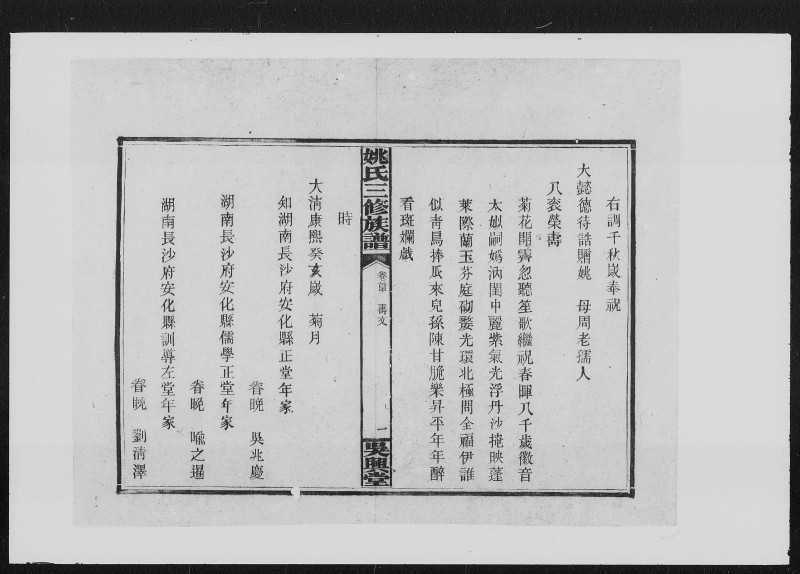 右調千秋歲奉祝
大懿德待誥贈姚 母周老孺人
八袠榮壽
菊花開霽忽聽笙歌繼祝春暉八千歲徽音
太姒嗣嬀汭閨中麗紫氣光浮丹沙掩映蓬
萊際蘭玉芬庭砌婺光環北極問全福伊誰
似青鳥捧瓜來兒孫陳甘脆樂昇平年年醉
看斑斕戲
姚氏三修族譜
卷首 壽文
一
吳興堂
時
大淸康熙癸亥歲 菊月
知湖南長沙府安化縣正堂年家
眷晚 吳兆慶
湖南長沙府安化縣儒學正堂年家
眷晚 喻之暹
湖南長沙府安化縣訓導左堂年家
眷晚 劉淸澤